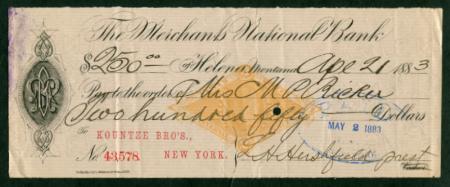 The Merchants National Bank
$250.00 Helena, Montana, Apr 21 1883
Pay to the order of Mrs M. P. Ricker
Two hundred fifty Dollars
To KOUNTZE BRO'S,
MAY 2 1883
No 43578. NEW YORK. L. H. Hershfield prest